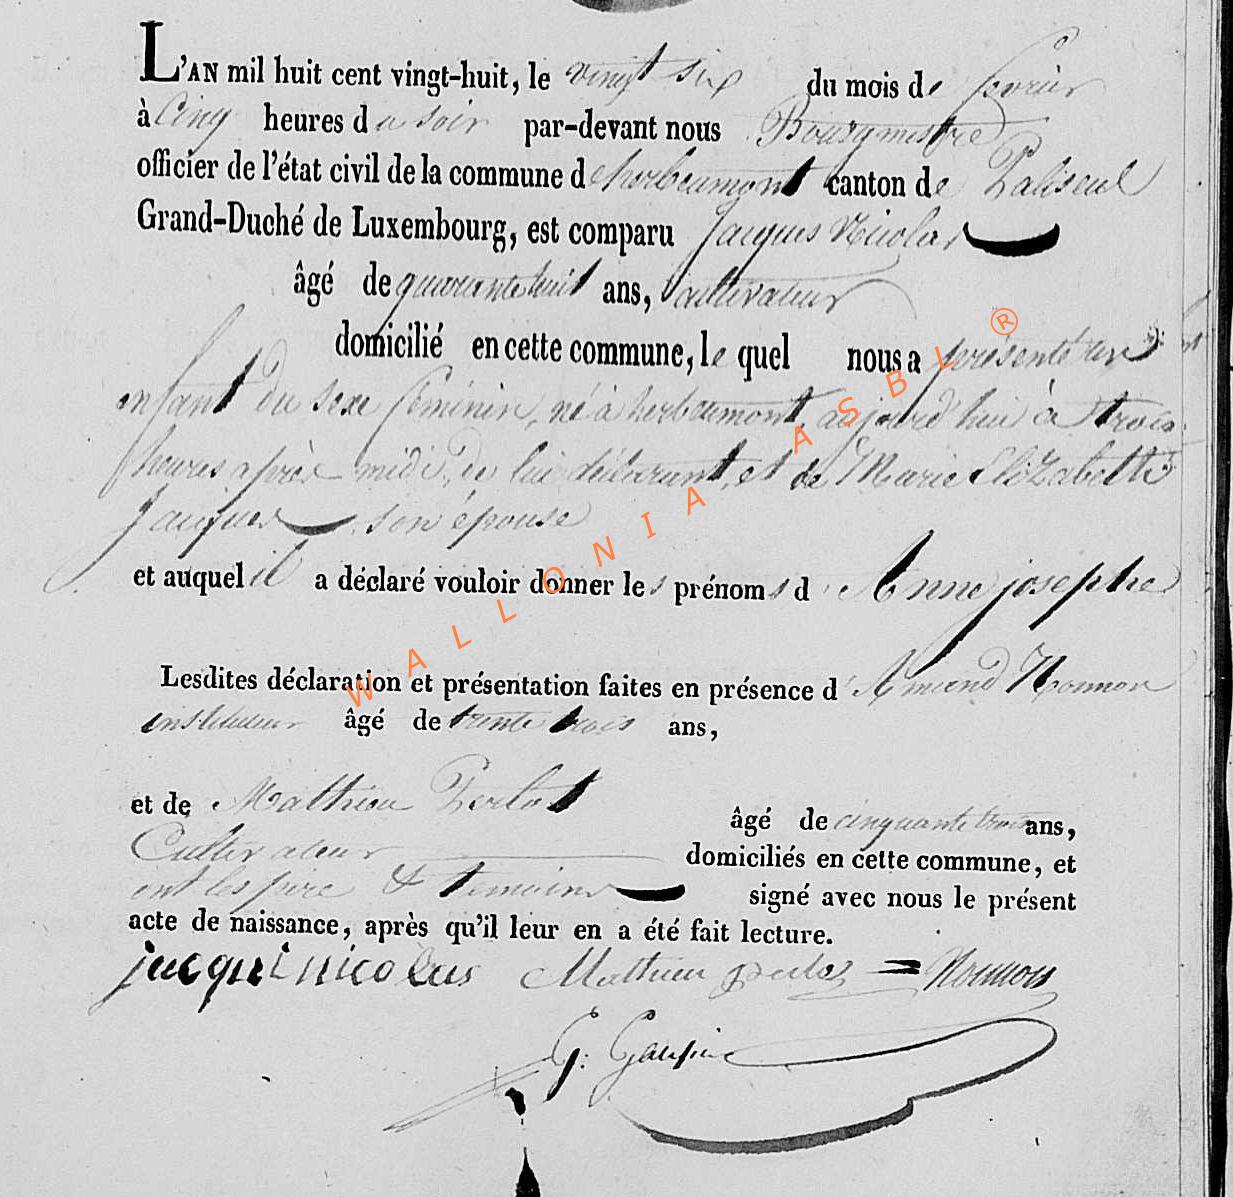 L'AN mil huit cent vingt-huit, le vingt six du mois de fevrier
à cinq heures du soir par-devant nous Bourgmestre
officier de l'état civil de la commune d'herbeumont canton de Paliseul
Grand-Duché de Luxembourg, est comparu Jacques Nicolas
âgé de quarante huit ans, cultivateur
domicilié en cette commune, le quel nous a présenté un
enfant du sexe féminin, né à herbeumont, aujourd'hui à trois
heures après midi, de lui déclarant, et de Marie Elizabethe
Jacques son épouse
et auquel il a déclaré vouloir donner les prénoms d'Anne josephe
Lesdites déclaration et présentation faites en présence d'Amand Nonnon
instituteur âgé de trente trois ans,
et de Mathieu Perlot
âgé de cinquante trois ans,
Cultivateur
domiciliés en cette commune, et
ont les père & témoins signé avec nous le présent
acte de naissance, après qu'il leur en a été fait lecture.
jacque nicolas Mathieu perlot = Nonnon
G:
WALLONIA ASBL ®